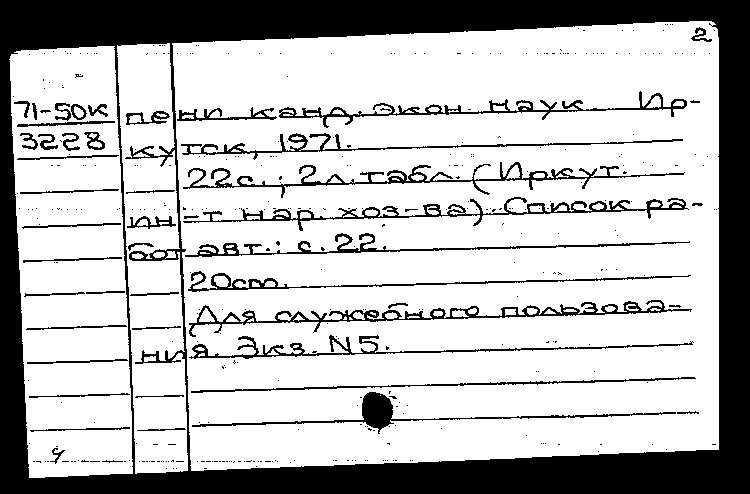 2
71-50К пени канд. экон. наук. Ир-
3228 кутск, 1971.
22с.; 2л.табл. (Иркут.
ин-т нар. хоз-ва). Список ра-
бот авт.: с. 22.
20cm.
Для служебного пользова-
ния. Экз. N5.